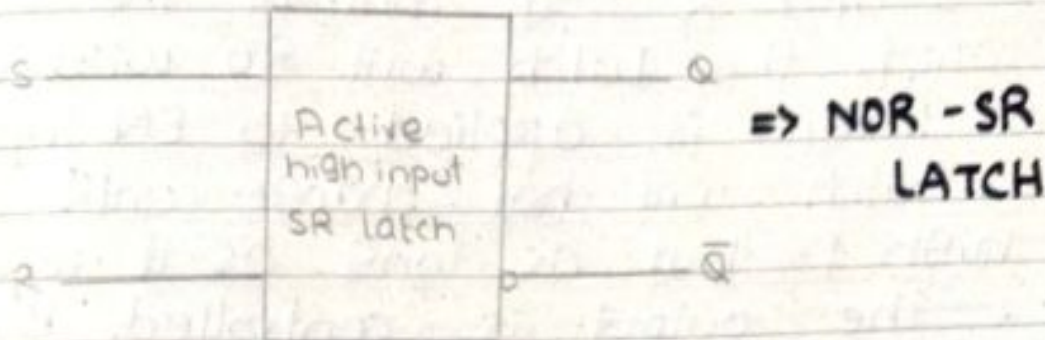 S
Q
Active
high input
SR latch
=> NOR - SR
LATCH
R
Q̅